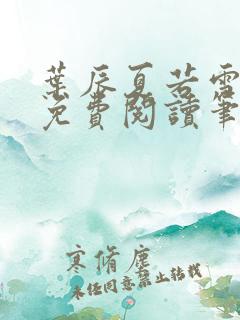 葉辰夏若雪
免費閱讀筆
寒脩塵
未经同意禁止转载